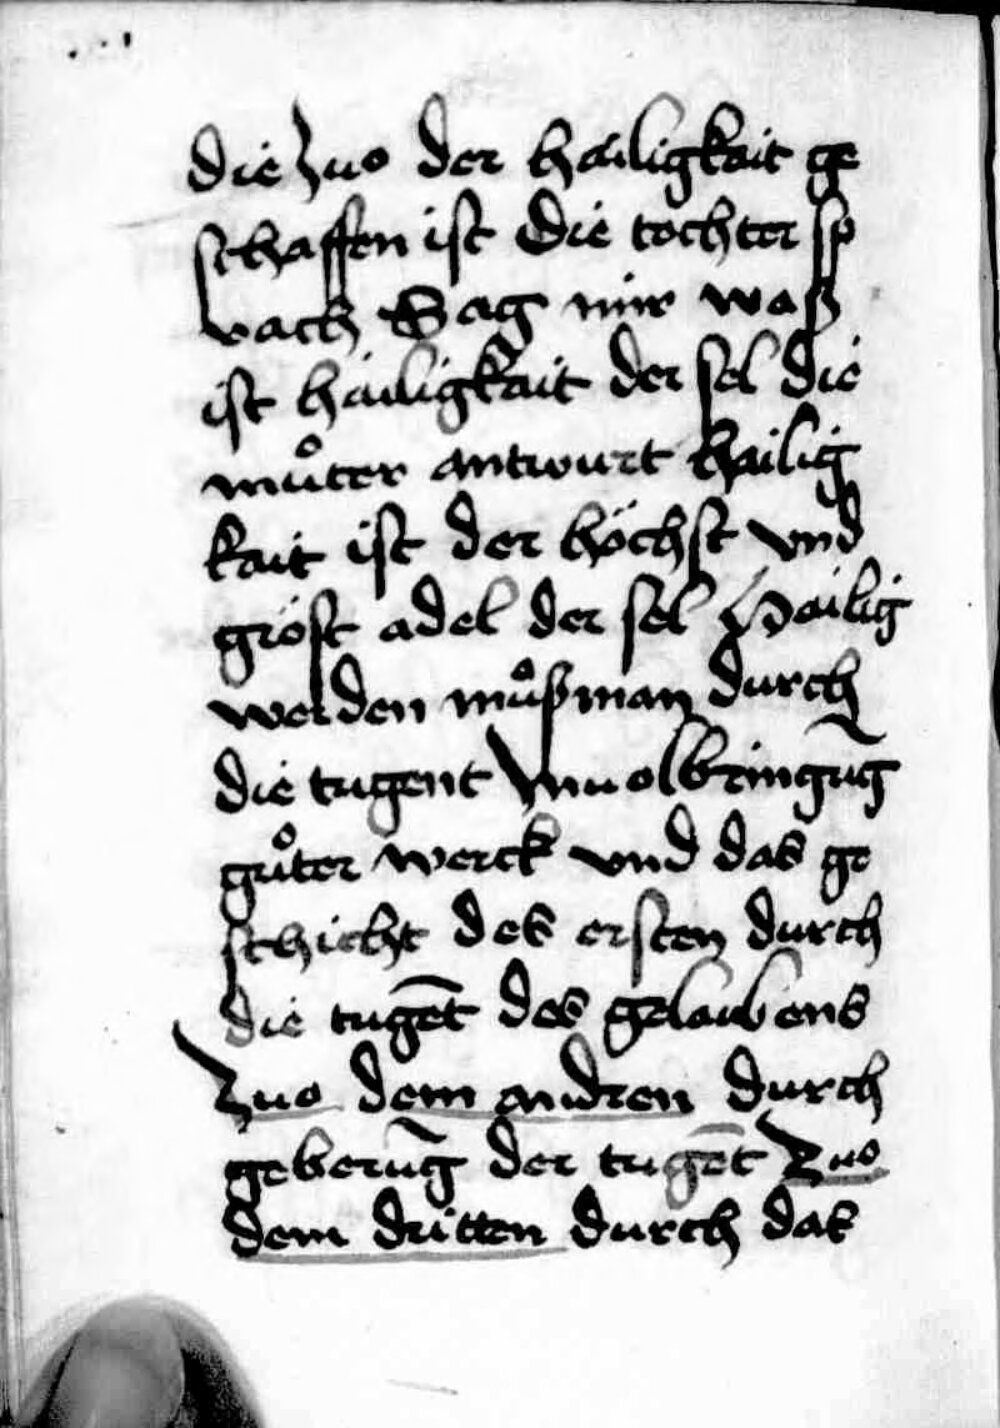 die zuo der hailigkait ge
schaffen ist Die tochter sp
rach Sag mir waß
ist hailigkait der sel die
muͦter antwurt hailig
kait ist der höchst vnd
gröst adel der sel Hailig
werden muͦß man durch
die tugent Inuolbringūg
guͦter werck vnd das ge
schicht des ersten durch
die tugēt des gelaubens
Zuo dem andren durch
geberūg der tugēt Zuo
dem dritten durch das